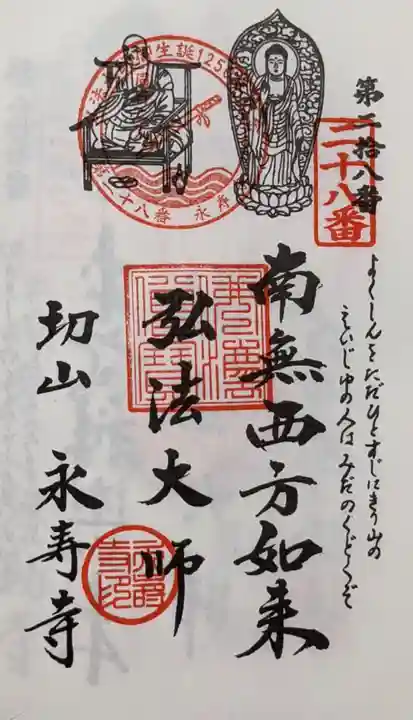 第二拾八番
二十八番
よくしんをただひとすじにきり山の
えいじゆの人はみだのくどくぞ
南無西方如来
弘法大師
切山 永寿寺
生誕125
二十八番 永寿